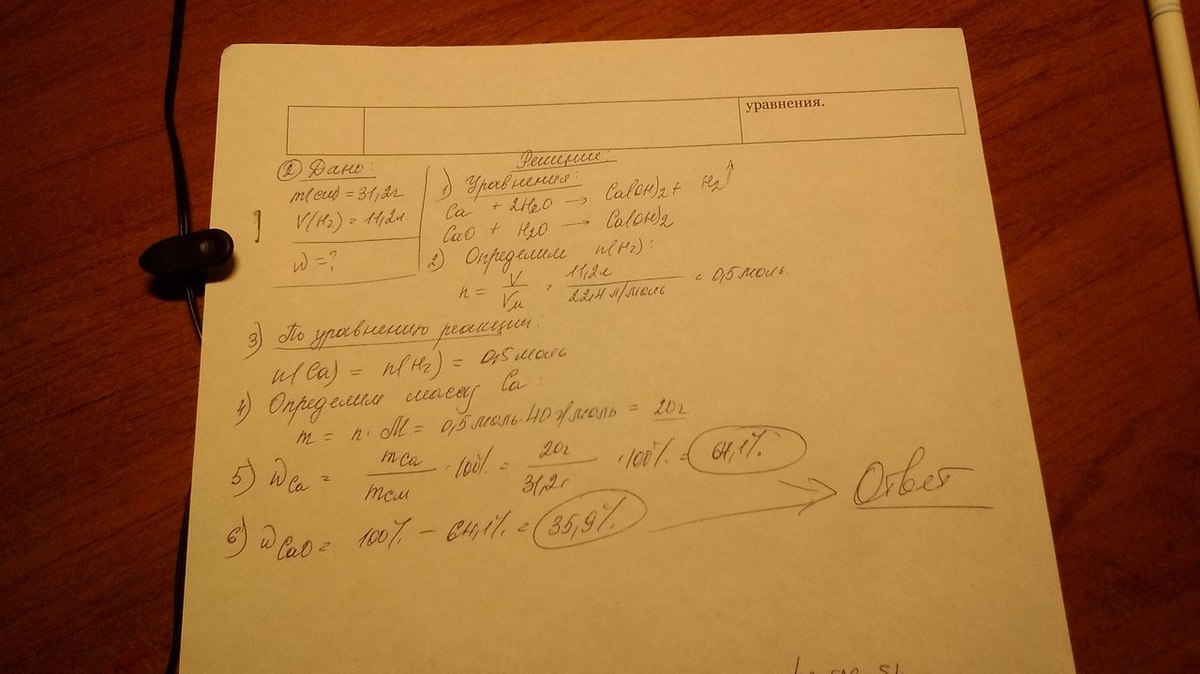 уравнения.
② Дано:
m(см) = 31,2г
V(H2) = 11,2л
W = ?
Решение:
1) Уравнения:
Ca + 2H2O → Ca(OH)2 + H2↑
CaO + H2O → Ca(OH)2
2) Определим n(H2):
n = V/Vм = 11,2л/22,4 л/моль = 0,5 моль.
3) По уравнению реакции:
n(Ca) = n(H2) = 0,5 моль
4) Определим массу Ca:
m = n · M = 0,5 моль · 40 г/моль = 20г
5) WCa = mCa/mсм · 100% = 20г/31,2г · 100% = 64,1%
6) WCaO = 100% − 64,1% = 35,9%
Ответ